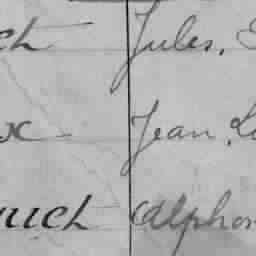 ch Jules, 
x Jean, L
uch Alphon